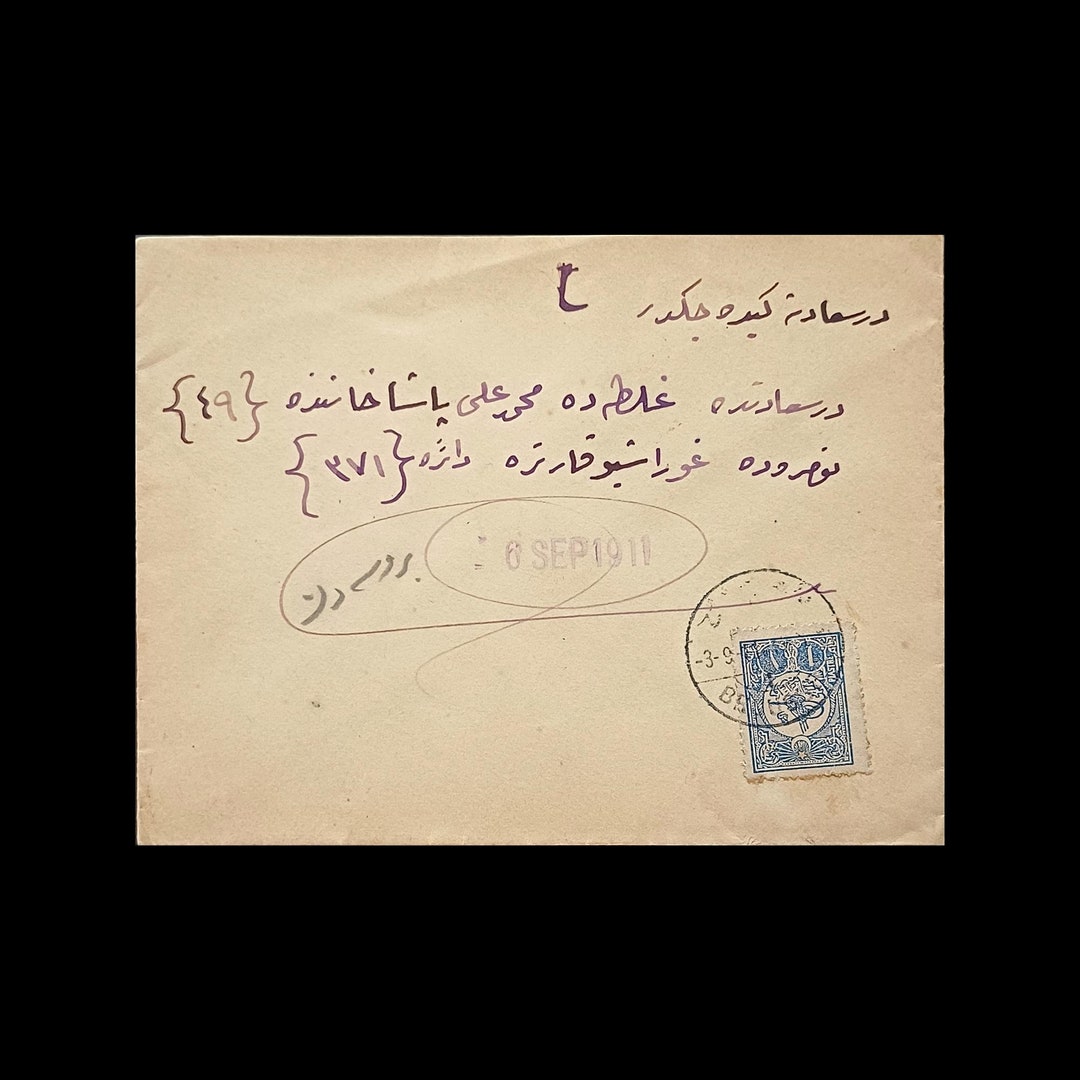 درسعادته كیده جكدر
درسعادتده غلطه ده محمد علی پاشا خاننده {٤٩}
نومروده غوراشیو قارتره دائره {٣٧١}
6 SEP 1911
-3-9-